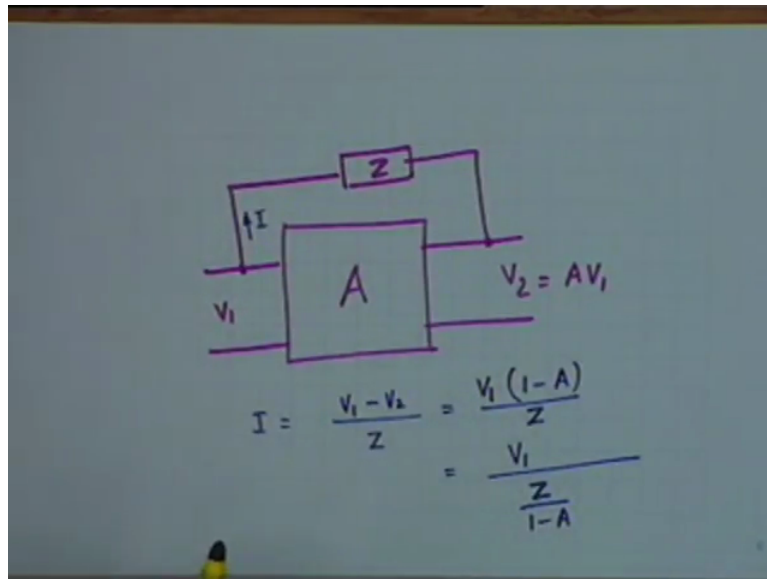 Z
I
A
V₁
V₂ = AV₁
I = \frac{V₁ - V₂}{Z} = \frac{V₁ (1 - A)}{Z}
= \frac{V₁}{\frac{Z}{1 - A}}